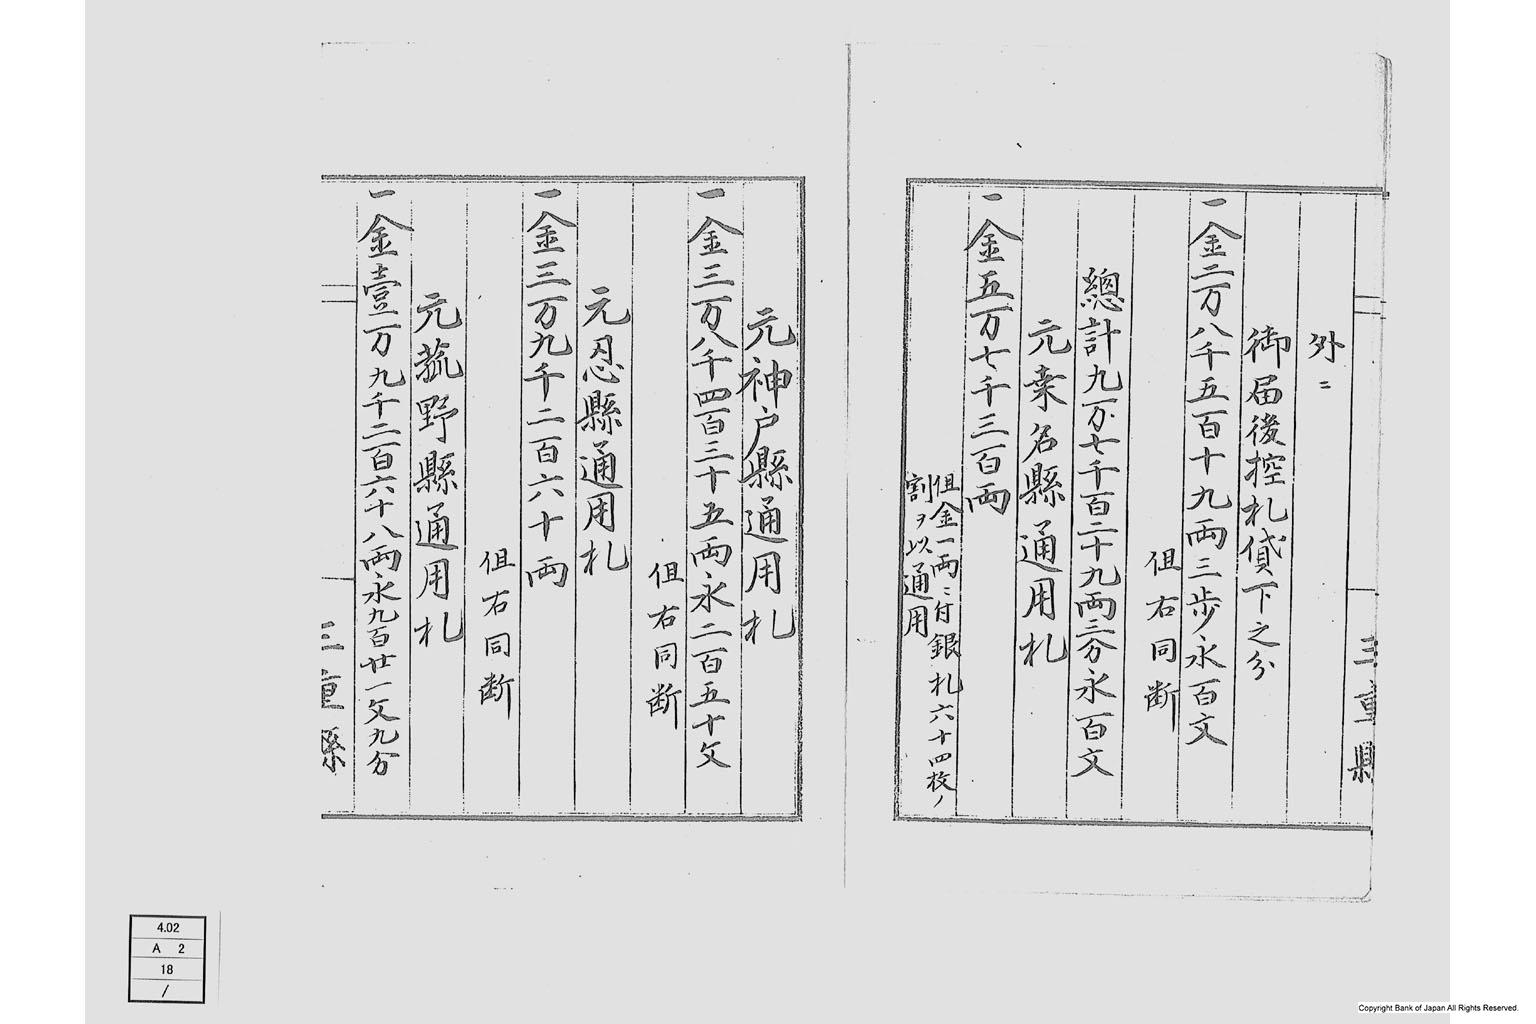 三重縣
外ニ
御届後控札貸下之分
一金二万八千五百十九両三歩永百文
但右同断
總計九万七千百二十九両三分永百文
元桒名縣通用札
一金五万七千三百両
但金一両ニ付銀札六十四枚ノ
割ヲ以通用
元神戸縣通用札
一金三万八千四百三十五両永二百五十文
但右同断
元忍縣通用札
一金三万九千二百六十両
但右同断
元菰野縣通用札
一金壹万九千二百六十八両永九百廿一文九分
三重縣
4.02
A 2
18
/
Copyright Bank of Japan All Rights Reserved.